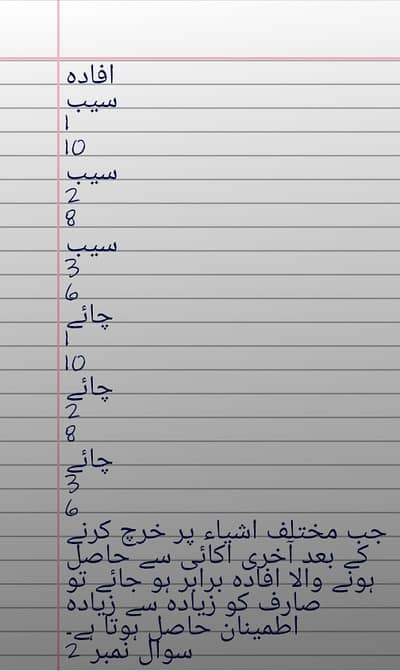 افادہ
سیب
1
10
سیب
2
8
سیب
3
6
چائے
1
10
چائے
2
8
چائے
3
6
جب مختلف اشیاء پر خرچ کرنے
کے بعد آخری اکائی سے حاصل
ہونے والا افادہ برابر ہو جائے تو
صارف کو زیادہ سے زیادہ
اطمینان حاصل ہوتا ہے۔
سوال نمبر 2